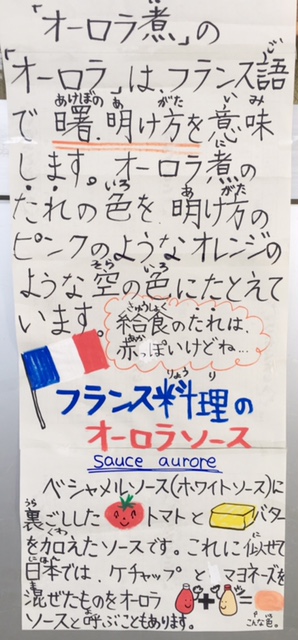 「オーロラ煮」の
「オーロラ」は、フランス語
で曙、明け方を意味
します。オーロラ煮の
たれの色を、明け方の
ピンクのようなオレンジの
ような空の色にたとえて
います。
給食のたれは、
赤っぽいけどね…
フランス料理の
オーロラソース
sauce aurore
ベシャメルソース(ホワイトソース)に
裏ごしした トマトと バター
を加えたソースです。これに似せて
日本では、ケチャップと マヨネーズを
混ぜたものをオーロラ + =
ソースと呼ぶこともあります。
こんな色。